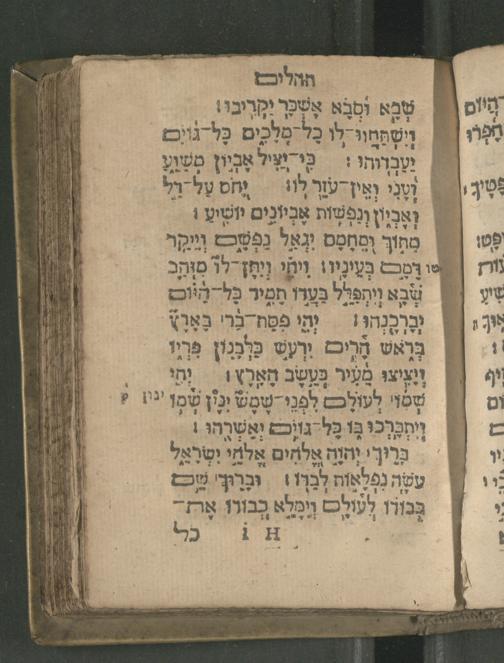 תהלים
שְׁבָא וּסְבָא אֶשְׁכָּר יַקְרִיבוּ׃
וְיִשְׁתַּחֲווּ־לוֹ כָל־מְלָכִים כָּל־גּוֹיִם
יַעַבְדוּהוּ׃ כִּי־יַצִּיל אֶבְיוֹן מְשַׁוֵּעַ
וְעָנִי וְאֵין־עֹזֵר לוֹ׃ יָחֹס עַל־דַּל
וְאֶבְיוֹן וְנַפְשׁוֹת אֶבְיוֹנִים יוֹשִׁיעַ׃
מִתּוֹךְ וּמֵחָמָס יִגְאַל נַפְשָׁם וְיֵיקַר
טו דָּמָם בְּעֵינָיו׃ וִיחִי וְיִתֶּן־לוֹ מִזְּהַב
שְׁבָא וְיִתְפַּלֵּל בַּעֲדוֹ תָמִיד כָּל־הַיּוֹם
יְבָרֲכֶנְהוּ׃ יְהִי פִסַּת־בַּר בָּאָרֶץ
בְּרֹאשׁ הָרִים יִרְעַשׁ כַּלְּבָנוֹן פִּרְיוֹ
וְיָצִיצוּ מֵעִיר כְּעֵשֶׂב הָאָרֶץ׃ יְהִי
שְׁמוֹ לְעוֹלָם לִפְנֵי־שֶׁמֶשׁ יִנּוֹן שְׁמוֹ ינון ק׳
וְיִתְבָּרְכוּ בוֹ כָּל־גּוֹיִם יְאַשְּׁרֻהוּ׃
בָּרוּךְ יְהוָה אֱלֹהִים אֱלֹהֵי יִשְׂרָאֵל
עֹשֵׂה נִפְלָאוֹת לְבַדּוֹ׃ וּבָרוּךְ שֵׁם
כְּבוֹדוֹ לְעוֹלָם וְיִמָּלֵא כְבוֹדוֹ אֶת־
H i כל